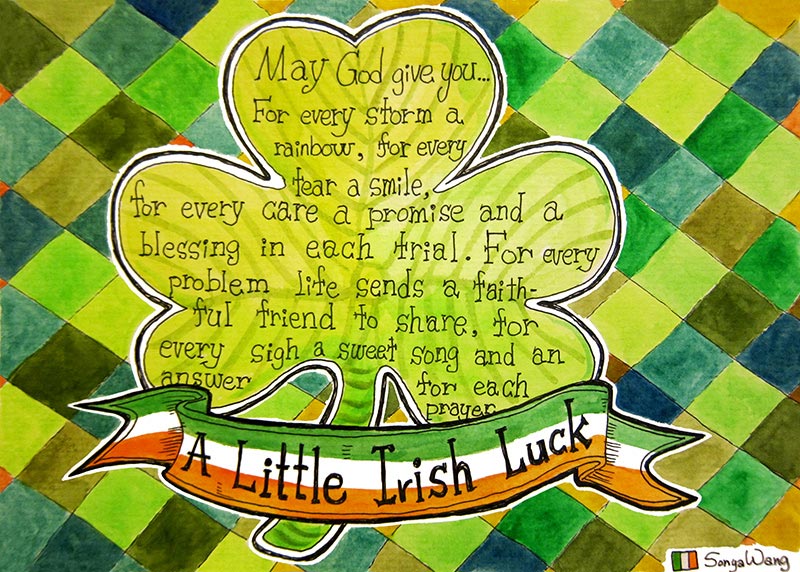 May God give you...
For every storm a
rainbow, for every
tear a smile,
for every care a promise and a
blessing in each trial. For every
problem life sends a faith-
ful friend to share, for
every sigh a sweet song and an
answer for each
prayer
A Little Irish Luck
Songa Wang